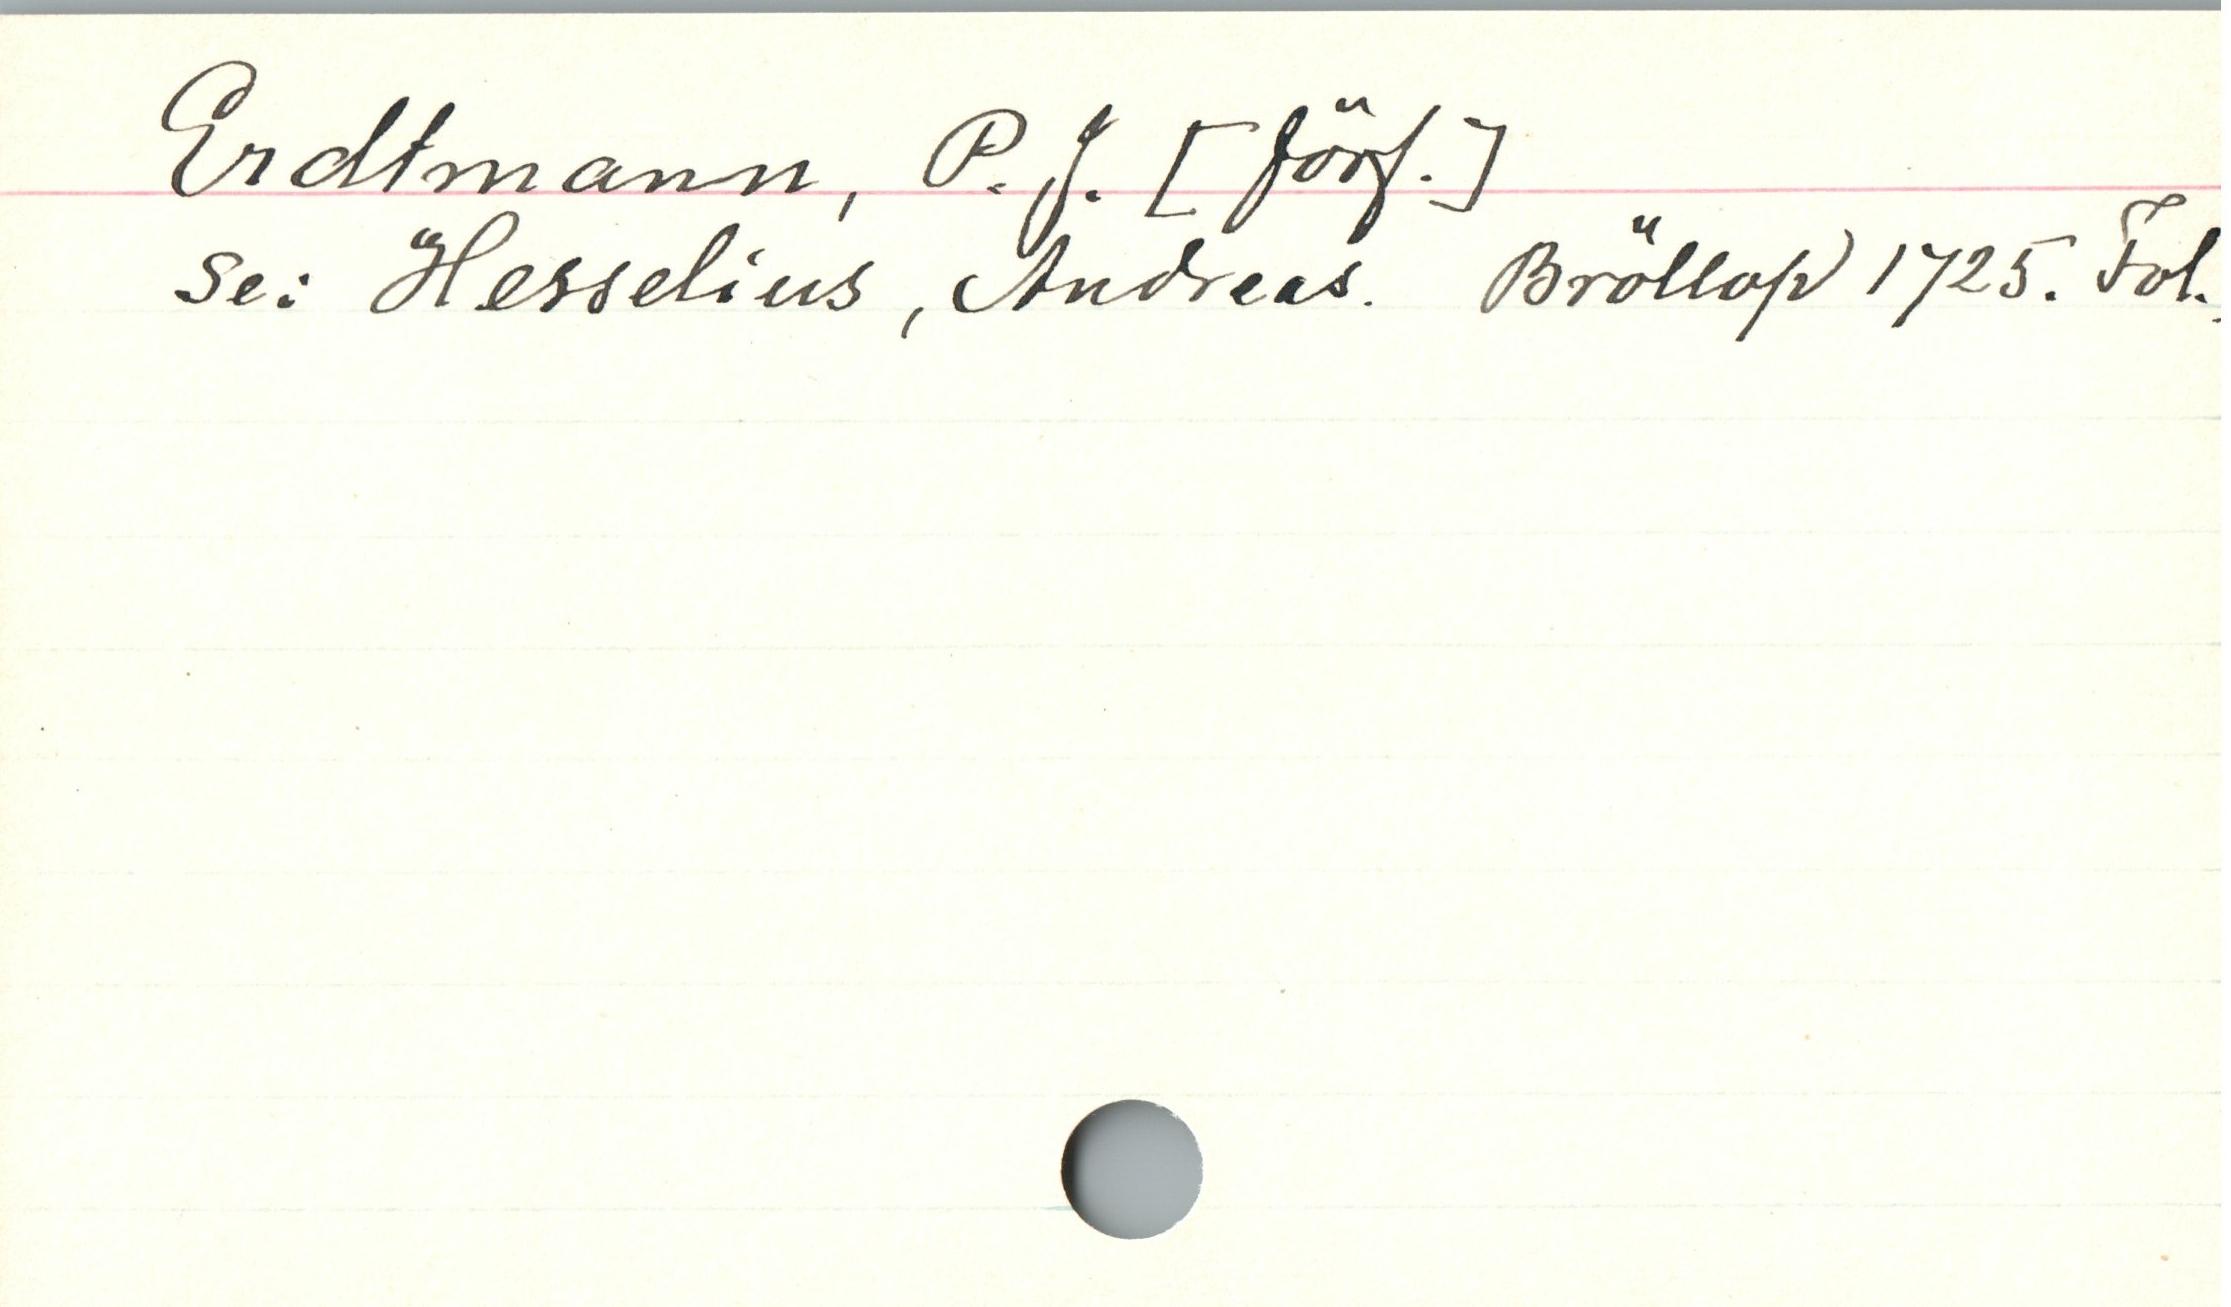 Erdtmann, P. J. [förf.]
se: Hesselius, Andreas. Bröllop 1725. Fol.